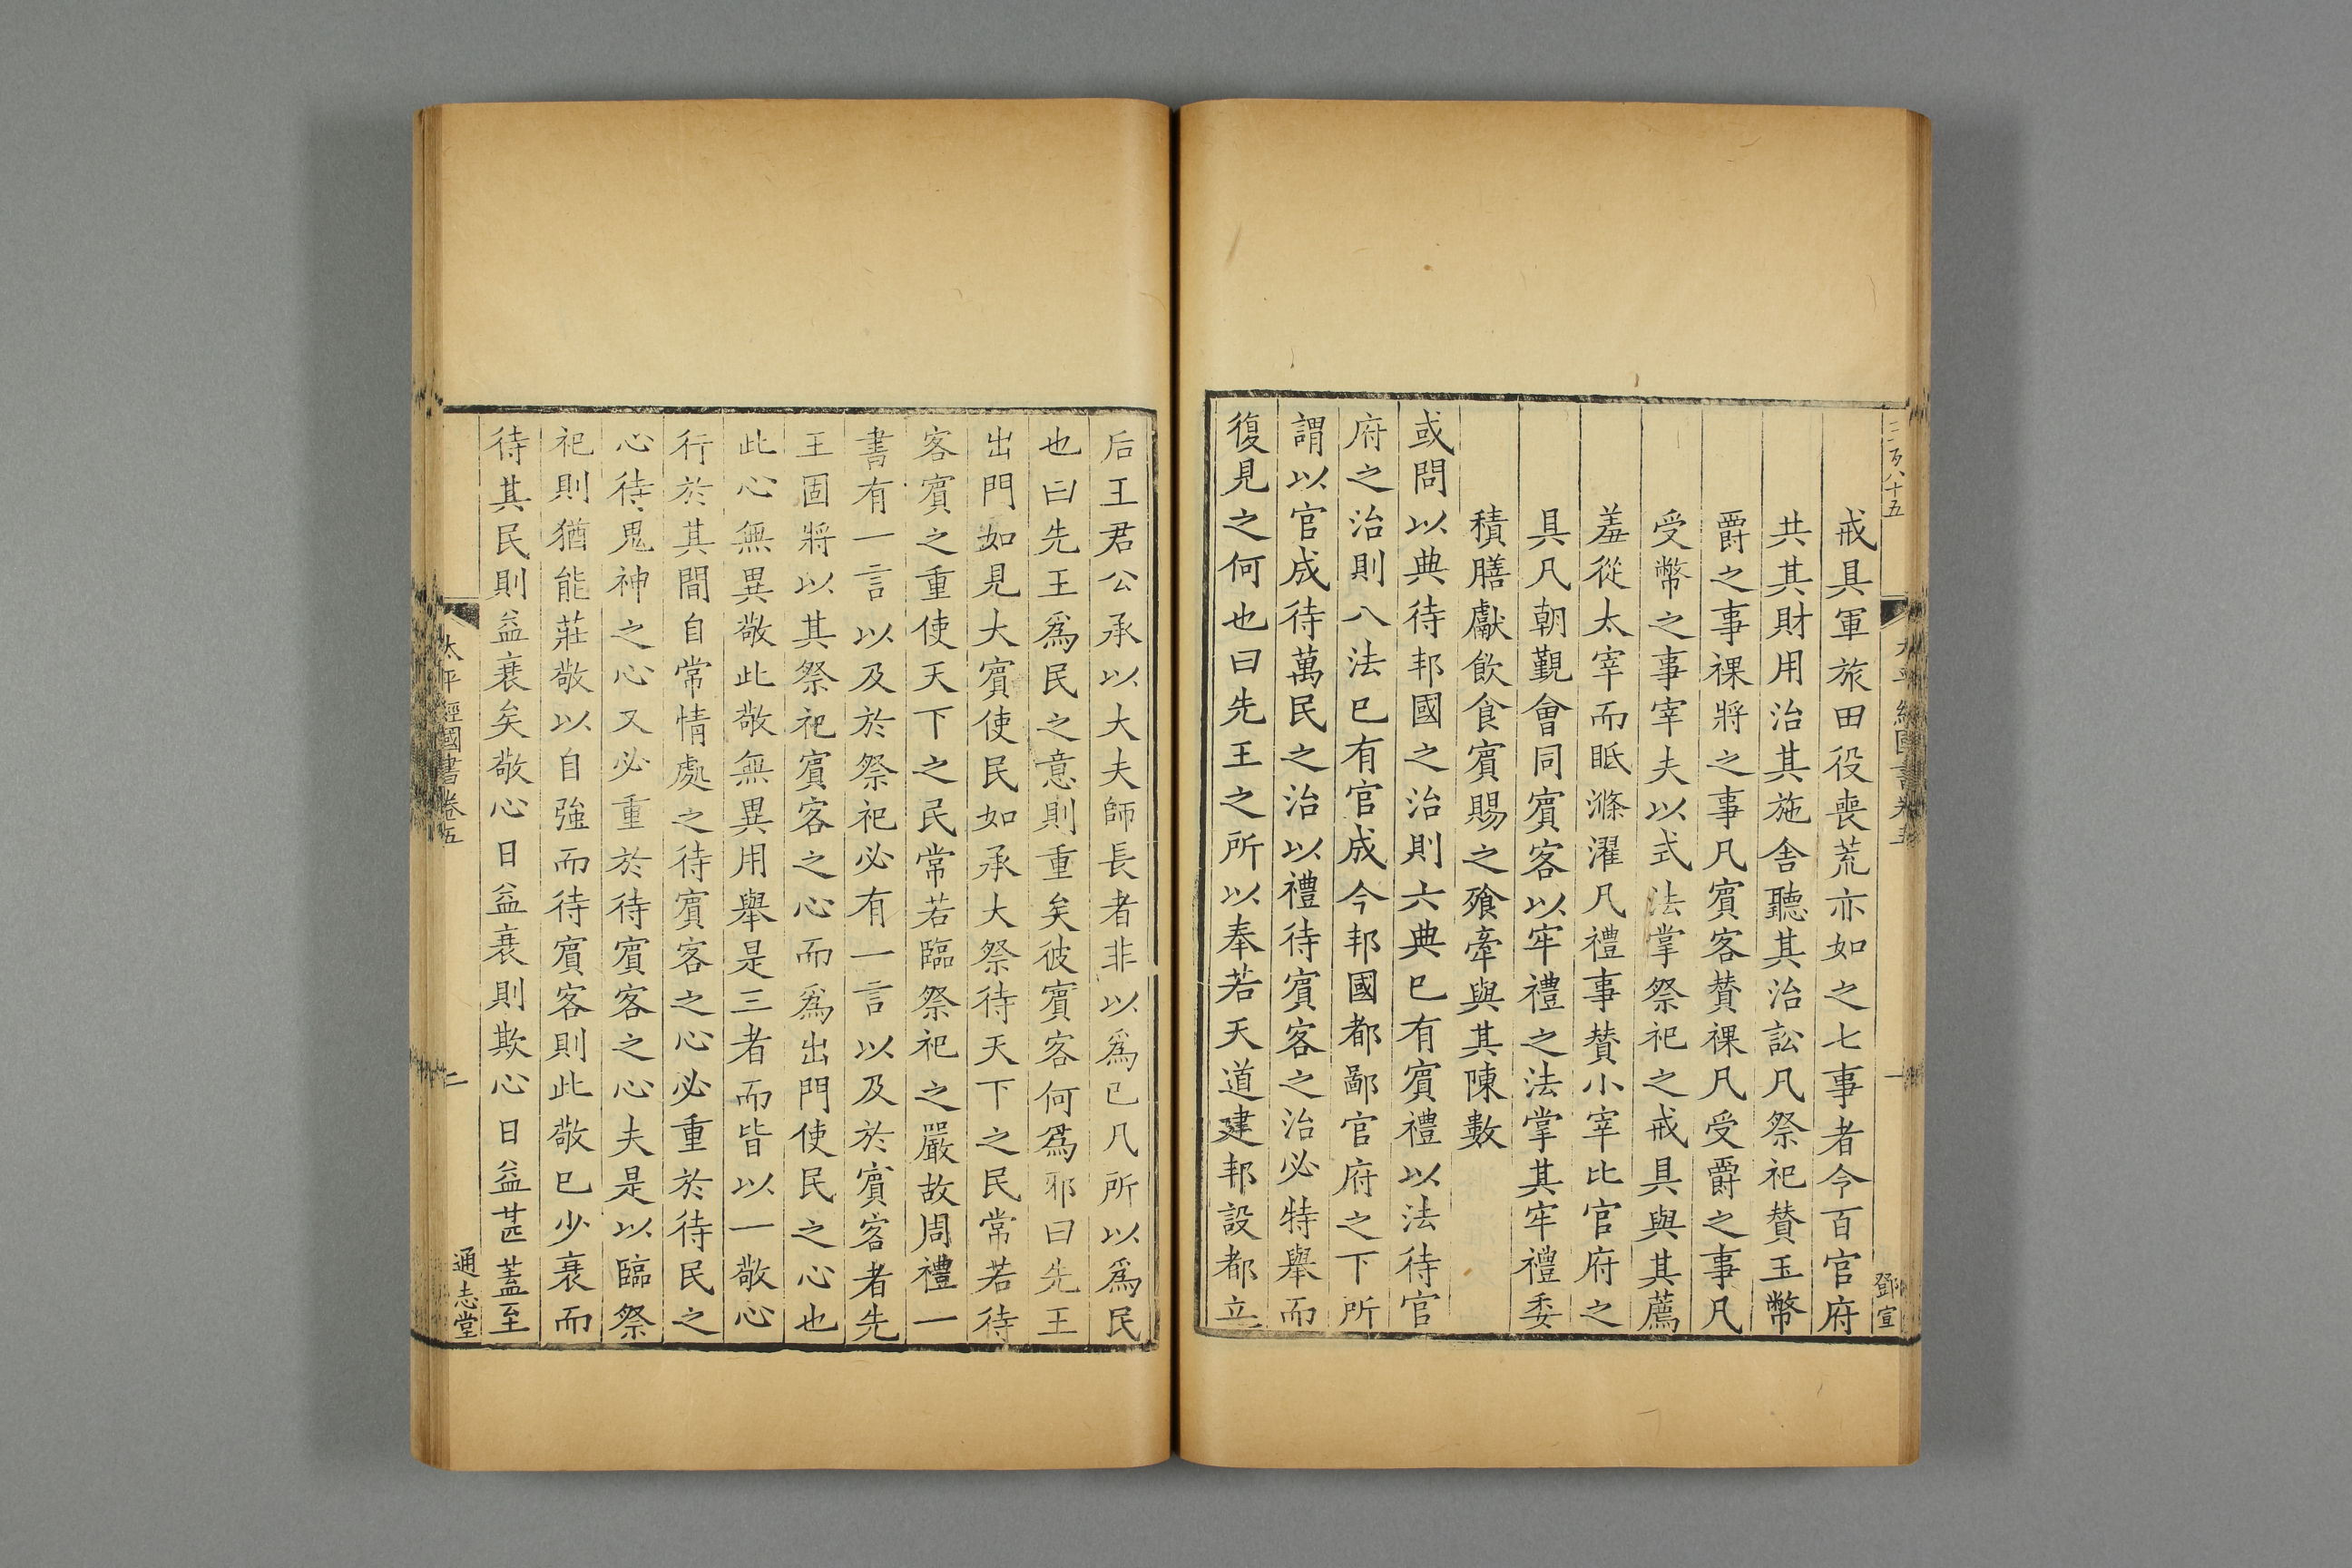 三百八十五
太平經國書卷五
一
鄧宣
戒具軍旅田役喪荒亦如之七事者令百官府
共其財用治其施舍聽其治訟凡祭祀贊玉幣
爵之事祼將之事凡賓客贊祼凡受爵之事凡
受幣之事宰夫以式法掌祭祀之戒具與其薦
羞從太宰而眂滌濯凡禮事贊小宰比官府之
具凡朝覲會同賓客以牢禮之法掌其牢禮委
積膳獻飲食賓賜之飧牽與其陳數
或問以典待邦國之治則六典已有賓禮以法待官
府之治則八法已有官成今邦國都鄙官府之下所
謂以官成待萬民之治以禮待賓客之治必特舉而
復見之何也曰先王之所以奉若天道建邦設都立
后王君公承以大夫師長者非以為已凡所以為民
也曰先王為民之意則重矣彼賓客何為邪曰先王
出門如見大賓使民如承大祭待天下之民常若待
客賓之重使天下之民常若臨祭祀之嚴故周禮一
書有一言以及於祭祀必有一言以及於賓客者先
王固將以其祭祀賓客之心而為出門使民之心也
此心無異敬此敬無異用舉是三者而皆以一敬心
行於其間自常情處之待賓客之心必重於待民之
心待鬼神之心又必重於待賓客之心夫是以臨祭
祀則猶能莊敬以自強而待賓客則此敬已少衰而
待其民則益衰矣敬心日益衰則欺心日益甚蓋至
太平經國書卷五
二
通志堂